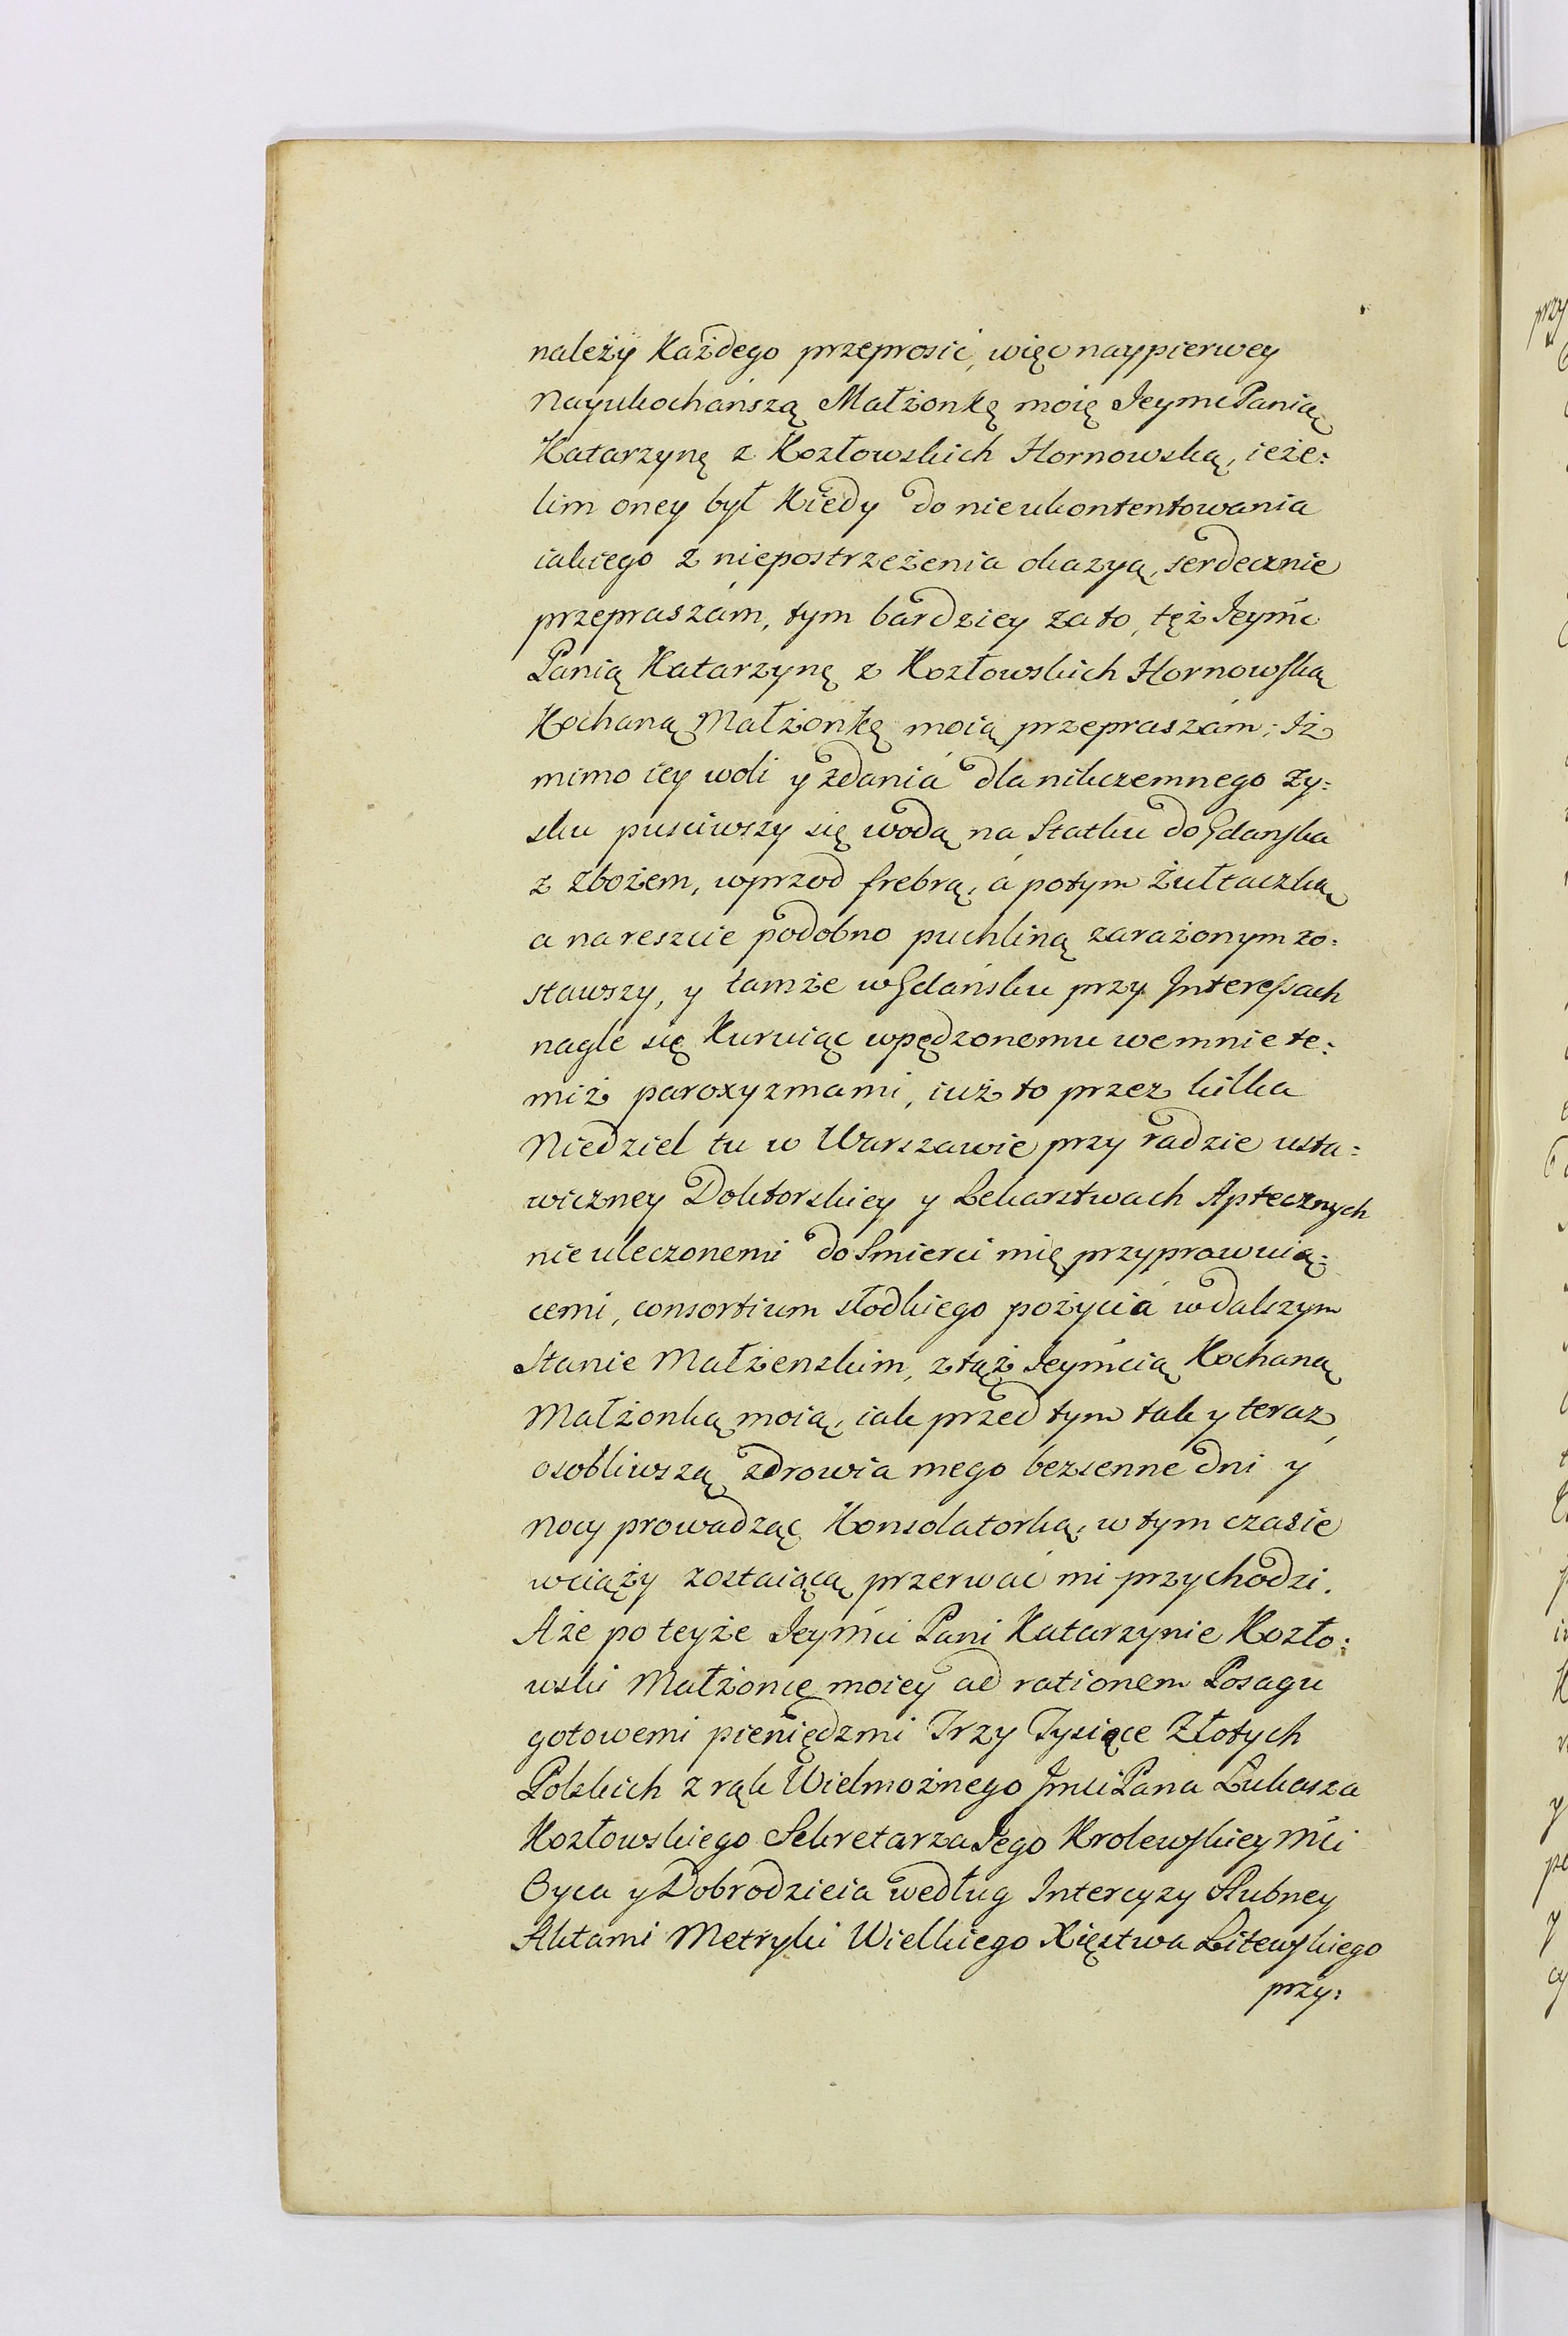 należy Każdego przeprosić, więc naypierwey
Nayukochańszą Małżonkę moię Jeymc Panią
Katarzynę z Kozłowskich Hornowską, ieże:
lim oney był Kiedy do nieukontentowania
iakiego z niepostrzeżenia okazyą, serdecznie
przepraszám, tym bardziey za to, tęż Jeymć
Panią Katarzynę z Kozłowskich Hornowską
Kochaną Małżonkę moią przepraszám; Iż
mimo iey woli y zdania dla nikczemnego zy:
sku pusciwszy się wodą na Statku do Gdanska
z zbożem, wprzod frebrą, á potym Żułtaczką
a nareszcie podobno puchliną zarażonym zo:
stawszy, y tamże w Gdańsku przy Interessach
nagle się Kuruiąc wpędzonemu we mnie te:
miż paroxyzmami, iuż to przez kilka
Niedziel tu w Warszawie przy radzie usta:
wiczney Doktorskiey y Lekarstwach Aptecznych
nieuleczonemi do Smierci mię przyprowuią:
cemi, consortium słodkiego pożycia w dalszym
Stanie Małżenskim, z tąż Jeymcią Kochaną
Małżonką moią, iak przed tym tak y teraz,
osobliwszą zdrowia mego bezsenne dni y
nocy prowadząc Konsolatorką, w tym czasie
w ciąży zostaiącą przerwać mi przychodzi.
A że po teyże Jeymći Pani Katarzynie Kozło:
wski Małżonie moiey ad rationem Posagu
gotowemi pieniędzmi Trzy Tysiące Złotych
Polskich z rąk Wielmożnego Jmci Pana Łukasza
Kozłowskiego Sekretarza Jego Krolewskiey Mći
Oyca y Dobrodzieia według Intercyzy slubney
Aktami Metryki Wielkiego Xięstwa Litewskiego
przy: